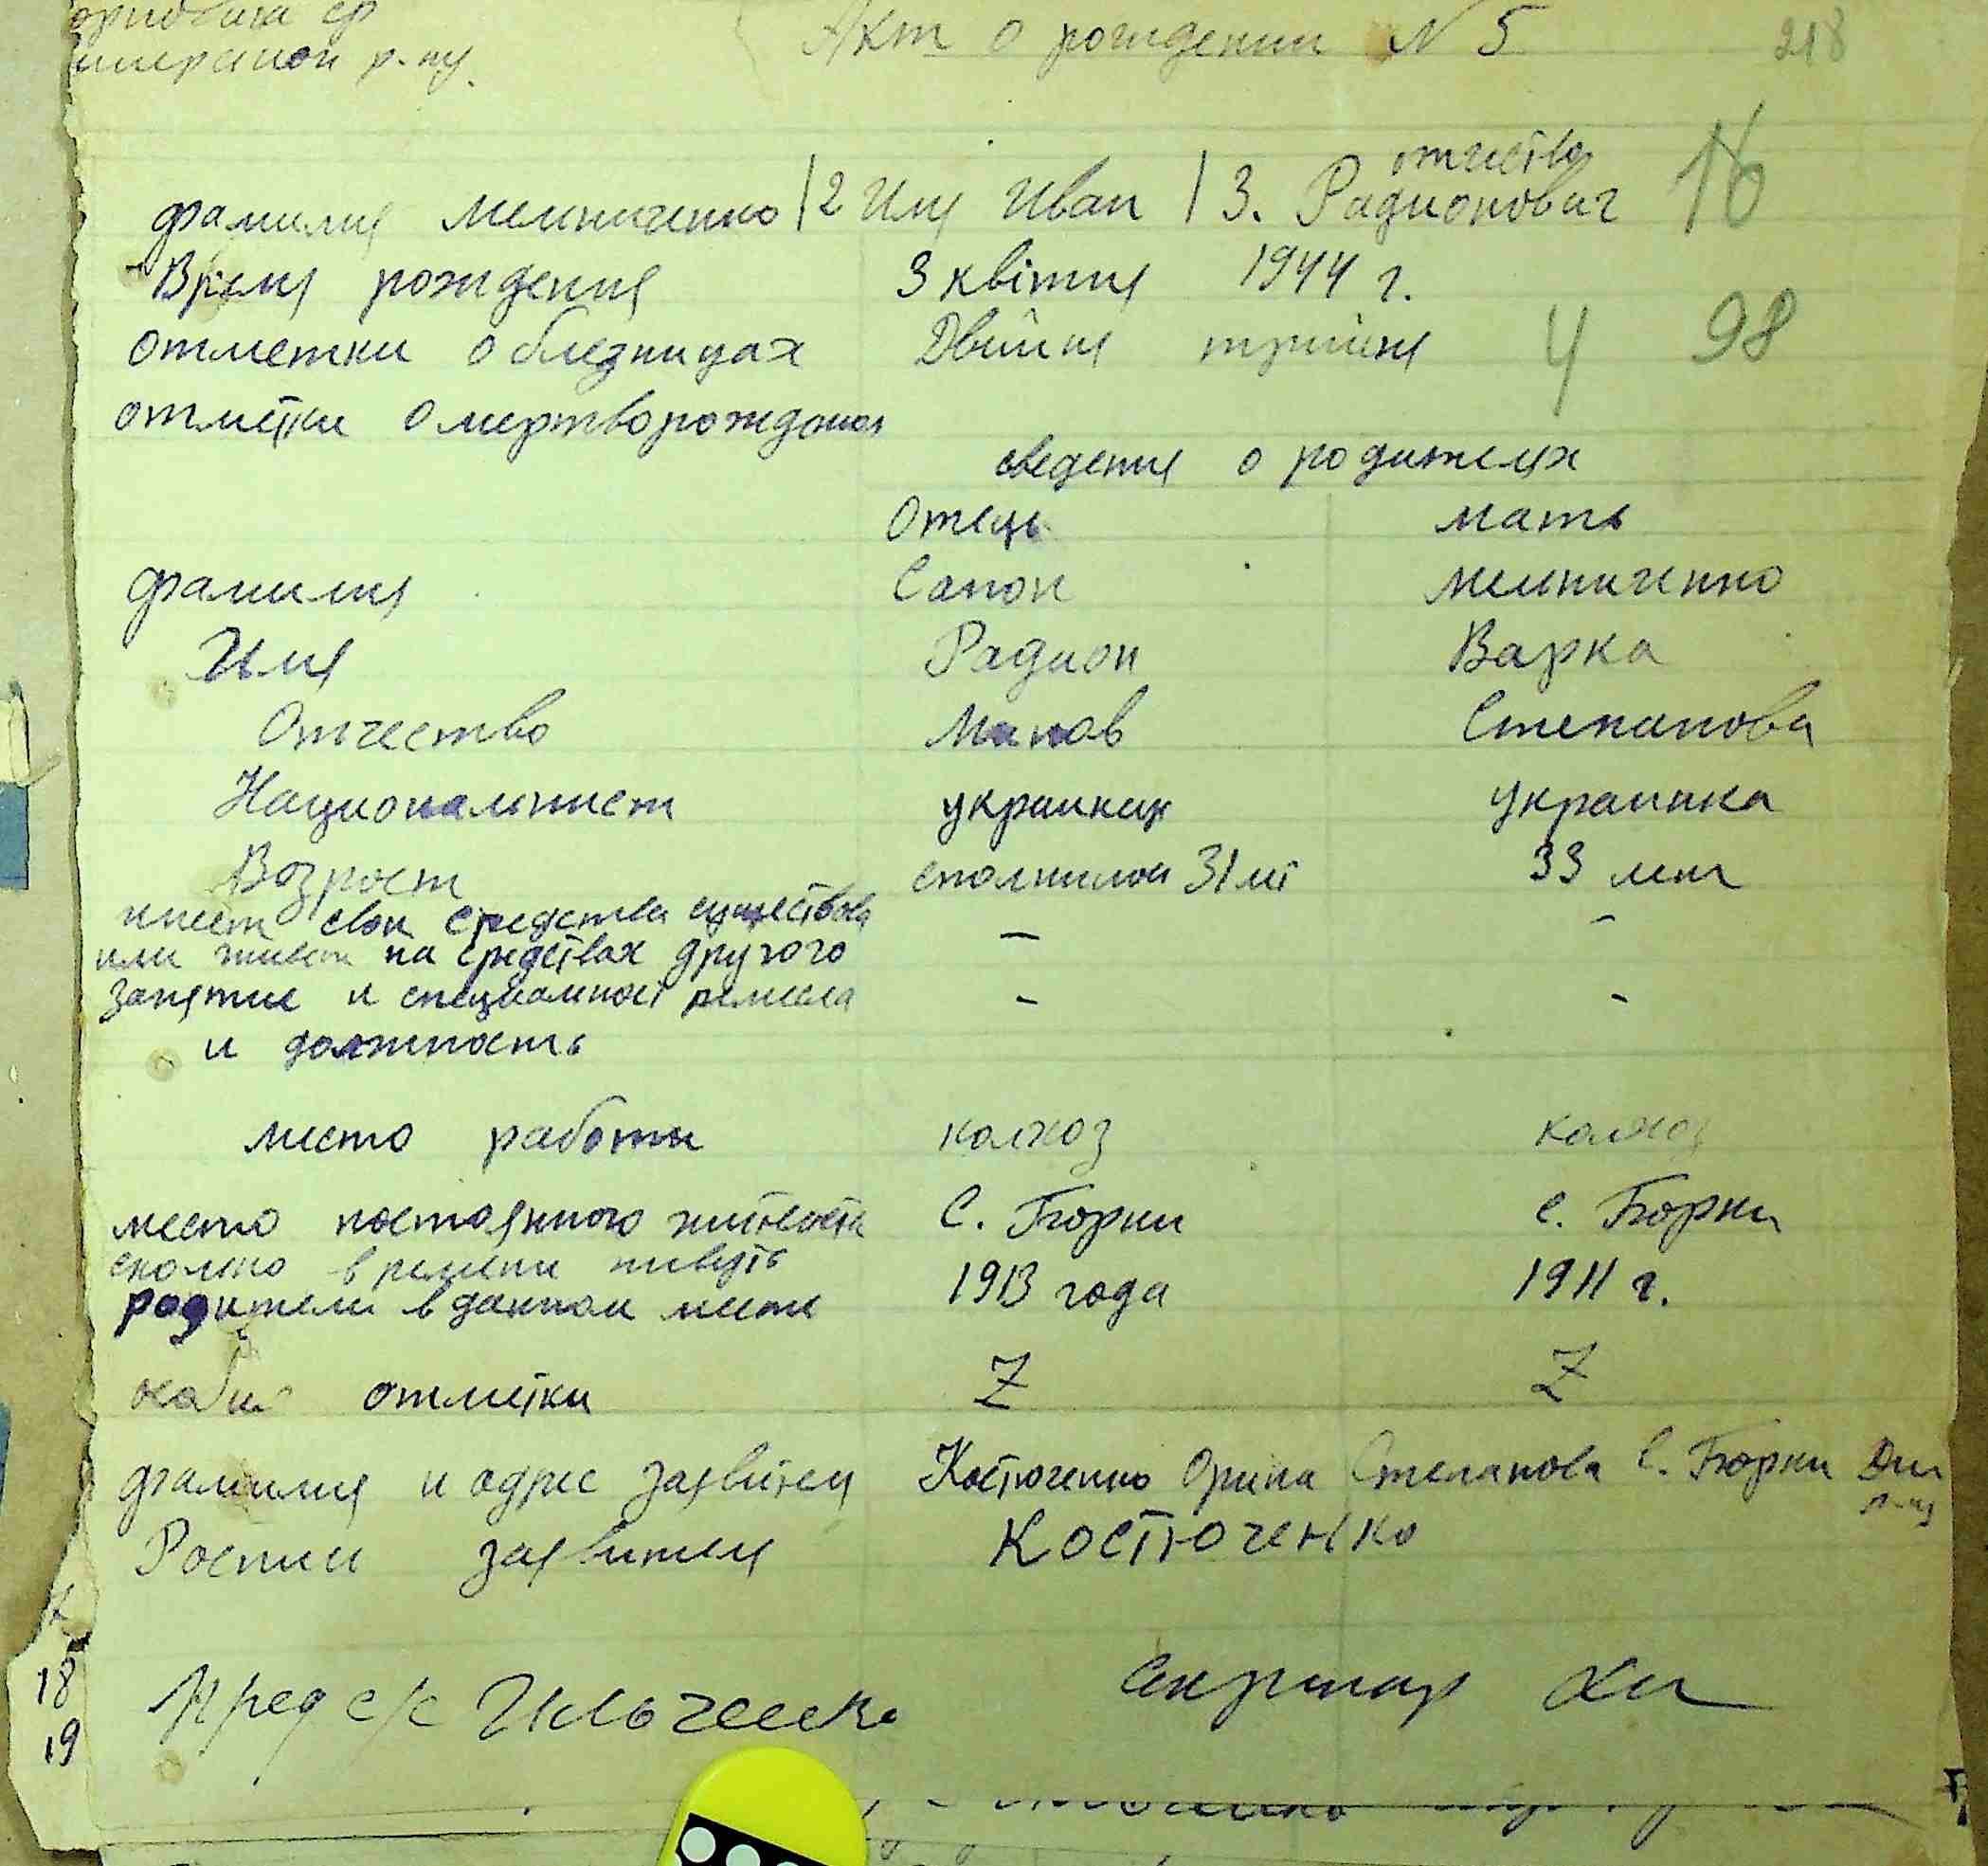 Акт о рождении N 5
218
отчество
фамилия Мельниченко | 2 Имя Иван | 3. Радионович 16
Время рождения 3 квітня 1944 г.
отметки о близницах Двійня трійня 4 98
отметки о мертворожденом
сведения о родителях
Отець мать
фамилия Сапон Мельниченко
Имя Радион Варка
Отчество Степанова
Националност украинец украинка
Возрост сполнилось 31 лет 33 лет
имеет свои средства существова – –
или живет на средствах другого
занятие и специальност ремесла – –
и должность
место работы колхоз колхоз
место постоянного жительств С. Борки с. Борки
сколько времени живуть
родители в данном месте 1913 года 1911 г.
особые отметки Z Z
фамилия и адрес заявителя Костюченко Орина Степанова С. Борки
Роспис заявителя Костюченко
Пред с/с Ильченко Секретар
18
19